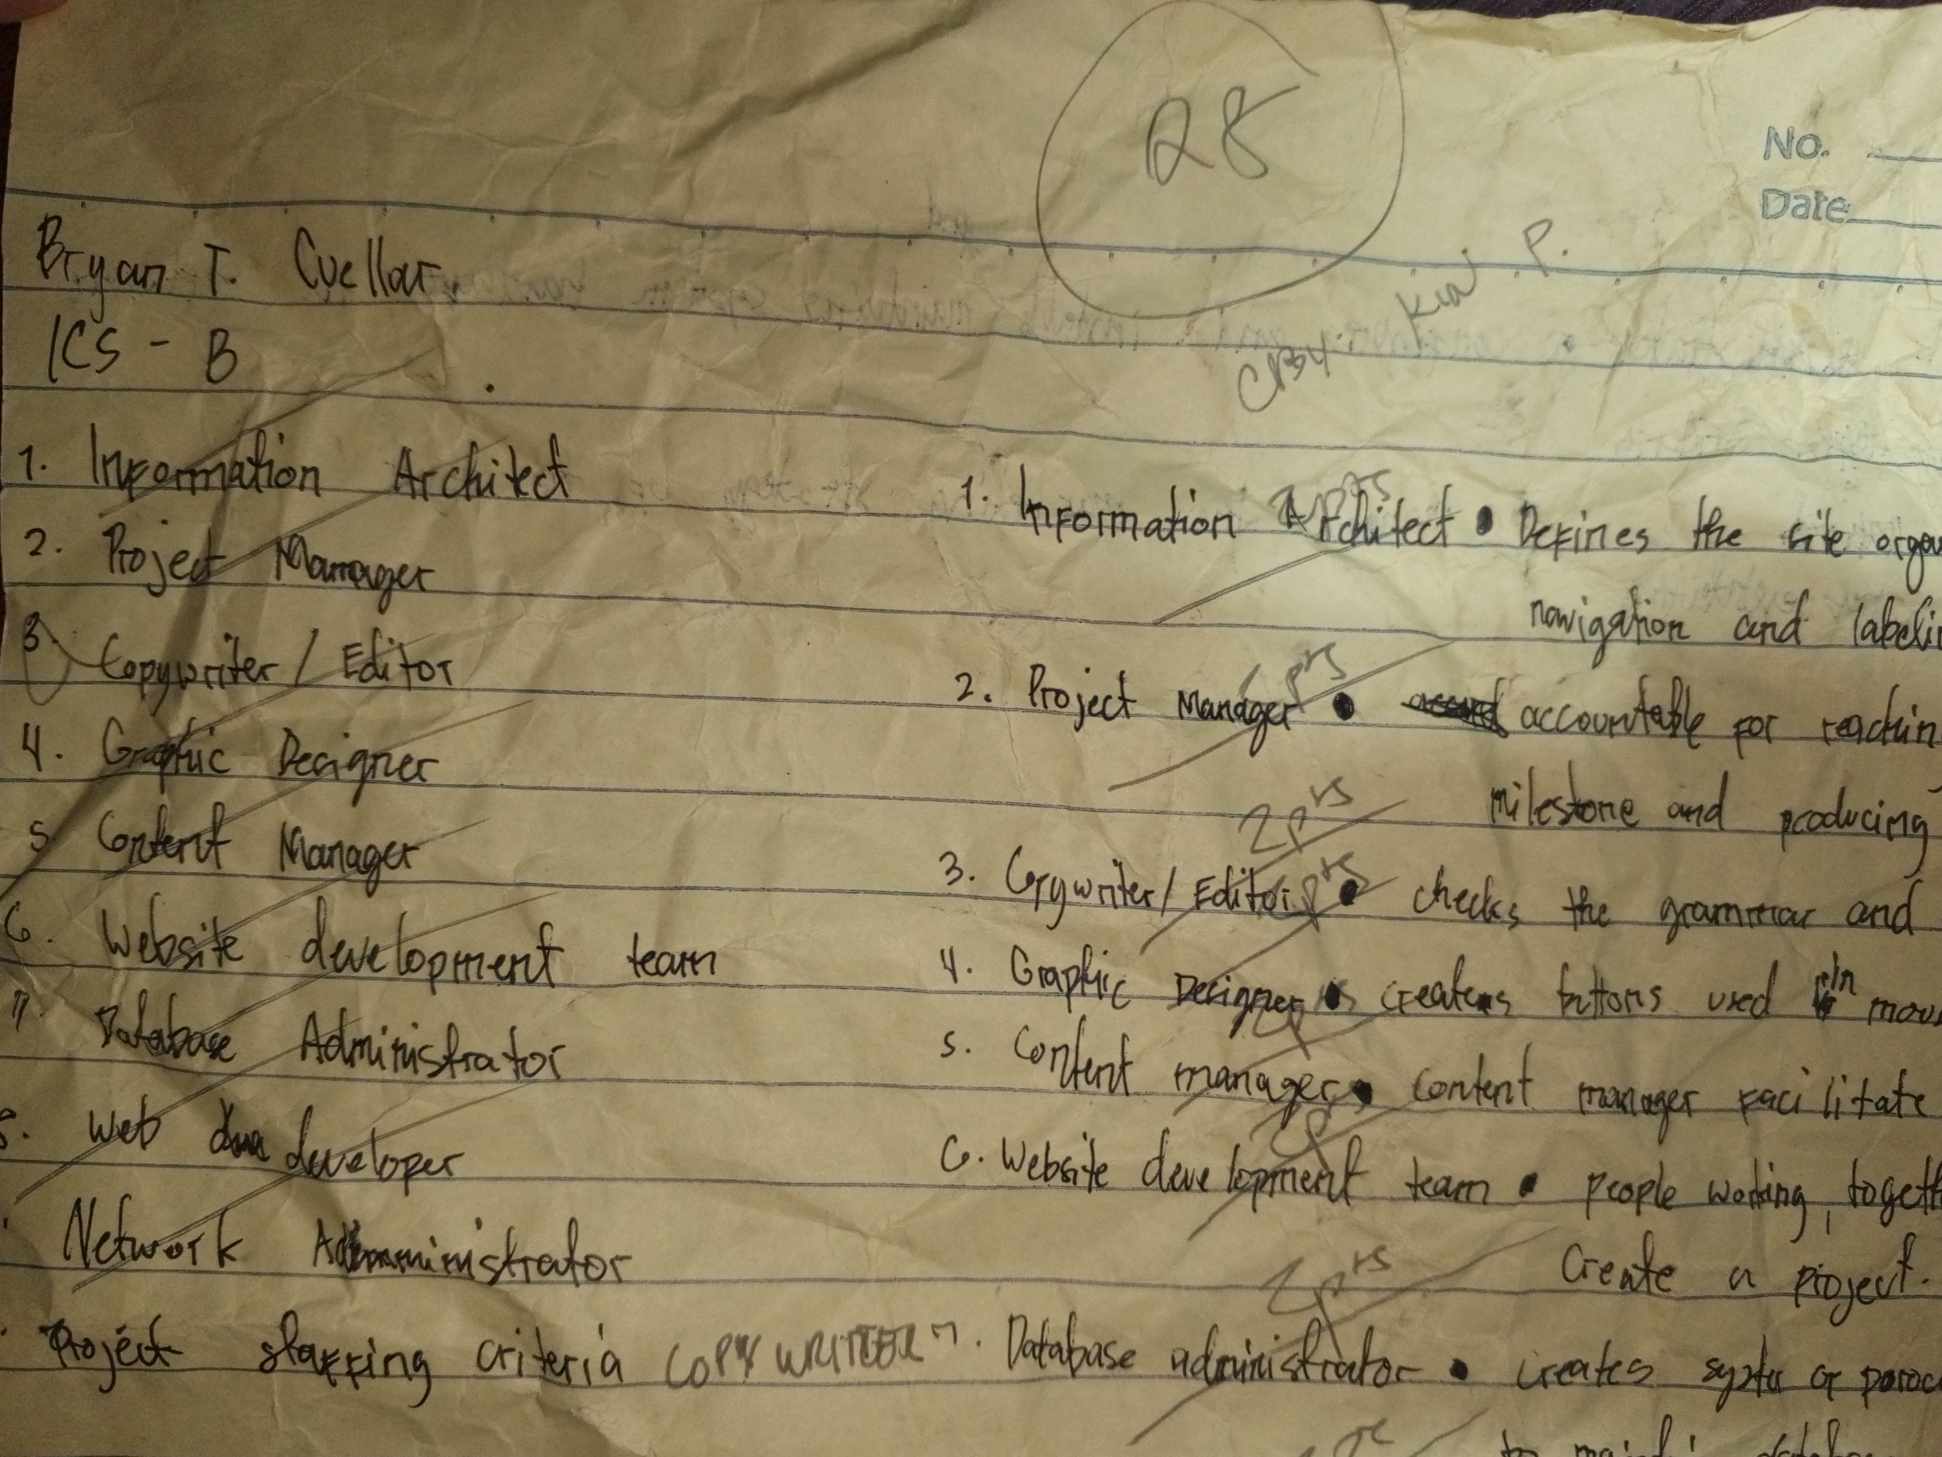 28
No.
Date
Bryan T. Cuellar
ICS - B
CBY: P.
1. Information Architect
2. Project Manager
3 Copywriter / Editor
4. Graphic Designer
5 Content Manager
6. Website development team
7. Database Administrator
8. Web developer
Network Administrator
Project staffing criteria COPY WRITER
1. Information Architect • Defines the site
2pts
navigation and
2. Project Manager • accountable for
pts
milestone and producing
2pts
3. Copywriter / Editor • checks the grammar and
2pts
4. Graphic Designer • creates buttons used in
2p
5. Content manager • content manager facilitate
2p
6. Website development team • people working,
create a project.
2pts
7. Database administrator • creates syste or
to